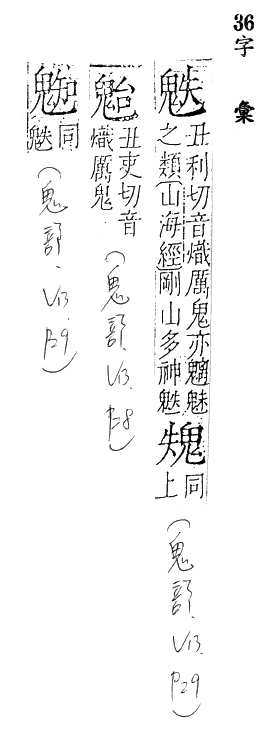 36字彙
⿺鬼失
丑利切音熾厲鬼亦魑魅
之類山海經剛山多神⿺鬼失
⿰失鬼
同
上
(鬼部, V13, P29)
⿺鬼台
丑吏切音
熾厲鬼
(鬼部, V13, P28)
同
⿺鬼失
(鬼部, V13, P29)